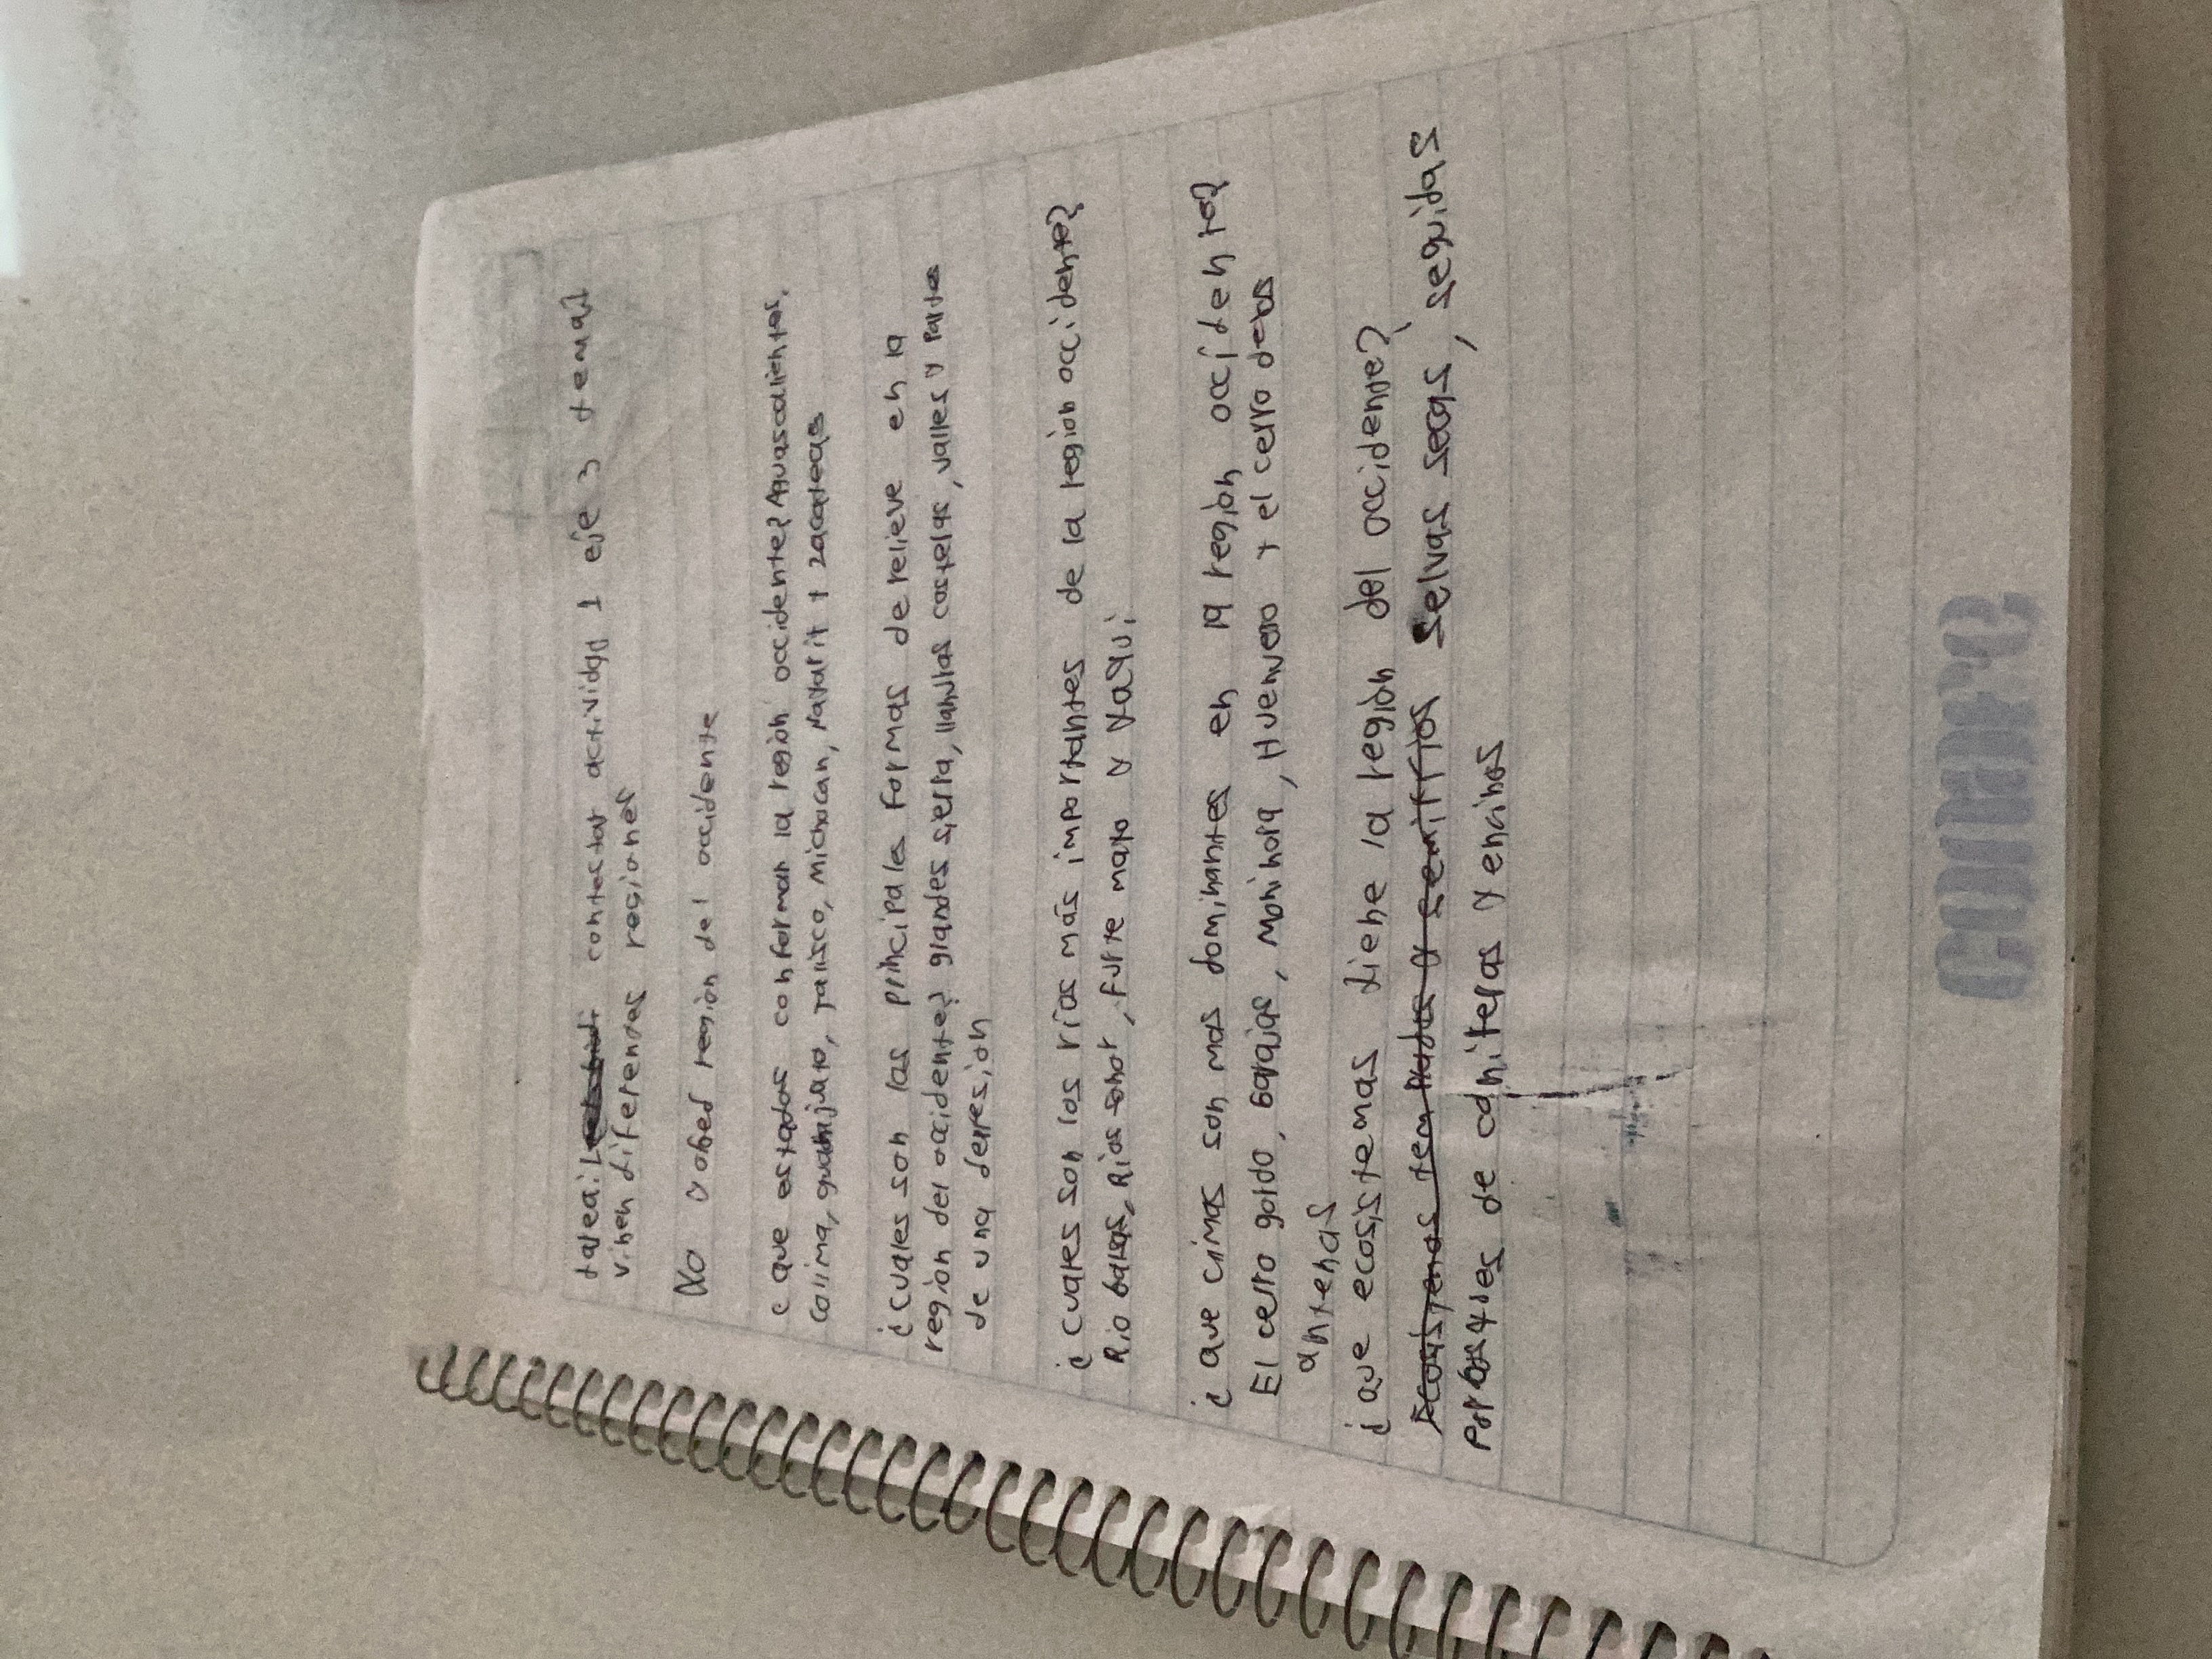 tarea: contestar actividad 1 eje 3 tema2
vinen diferendes regiones
No y ober región del occidente
¿ que estados conforman la región occidente? Aguascalientes,
colima, guanijuato, jalisco, michocan, Nayarit y zacateas
¿ cuales son las principales formas de relieve en la
región del occidente? grandes sierra, llanuras costelas, valles y partes
de una depresion
¿ cuales son los ríos más importantes de la region occidente?
Rio balsas, Rios sonor, furte mayo y yaqui
¿ que cimas son mas dominantes en la región occidente?
El cerro gordo, barajas, Mohinora, Huenvero y el cerro de las
antenas
¿ que ecosistemas tiene la región del occidente?
Ecosistemas templados y semifríos Selvas secas, seguidas
por de coniteras y encinos